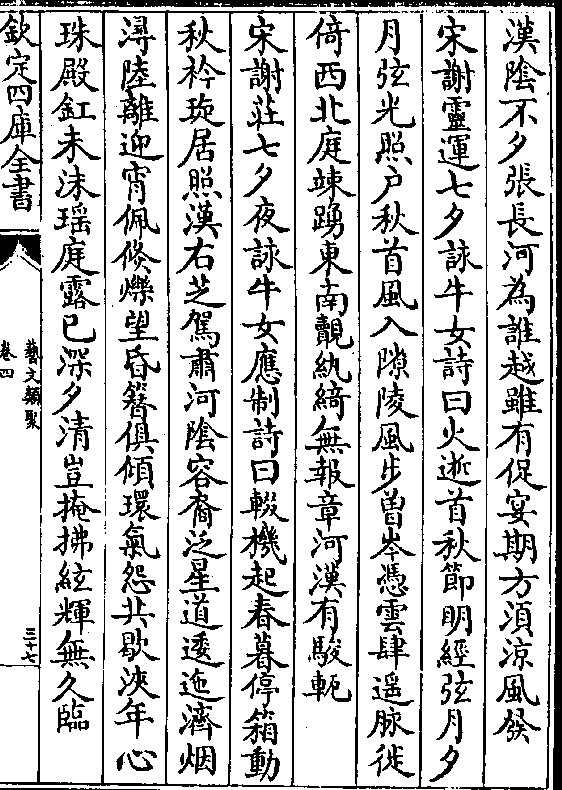 漢陰不夕張長河為誰越雖有促宴期方須涼風發
宋謝靈運七夕詠牛女詩曰火逝首秋節明經弦月夕
月弦光照戶秋首風入隙陵風步曾岑憑雲肆遥脉徙
倚西北庭竦踴東南覿紈綺無報章河漢有駿軛
宋謝莊七夕夜詠牛女應制詩曰輟機起春暮停箱動
秋衿琁居照漢右芝駕肅河陰容裔泛星道逶迤濟烟
潯陸離迎宵佩倐爍望昏簪俱傾環氣怨共歇浹年心
珠殿釭未沬瑶庭露已深夕清豈掩拂絃輝無久臨
欽定四庫全書
藝文類聚
卷四
三十七